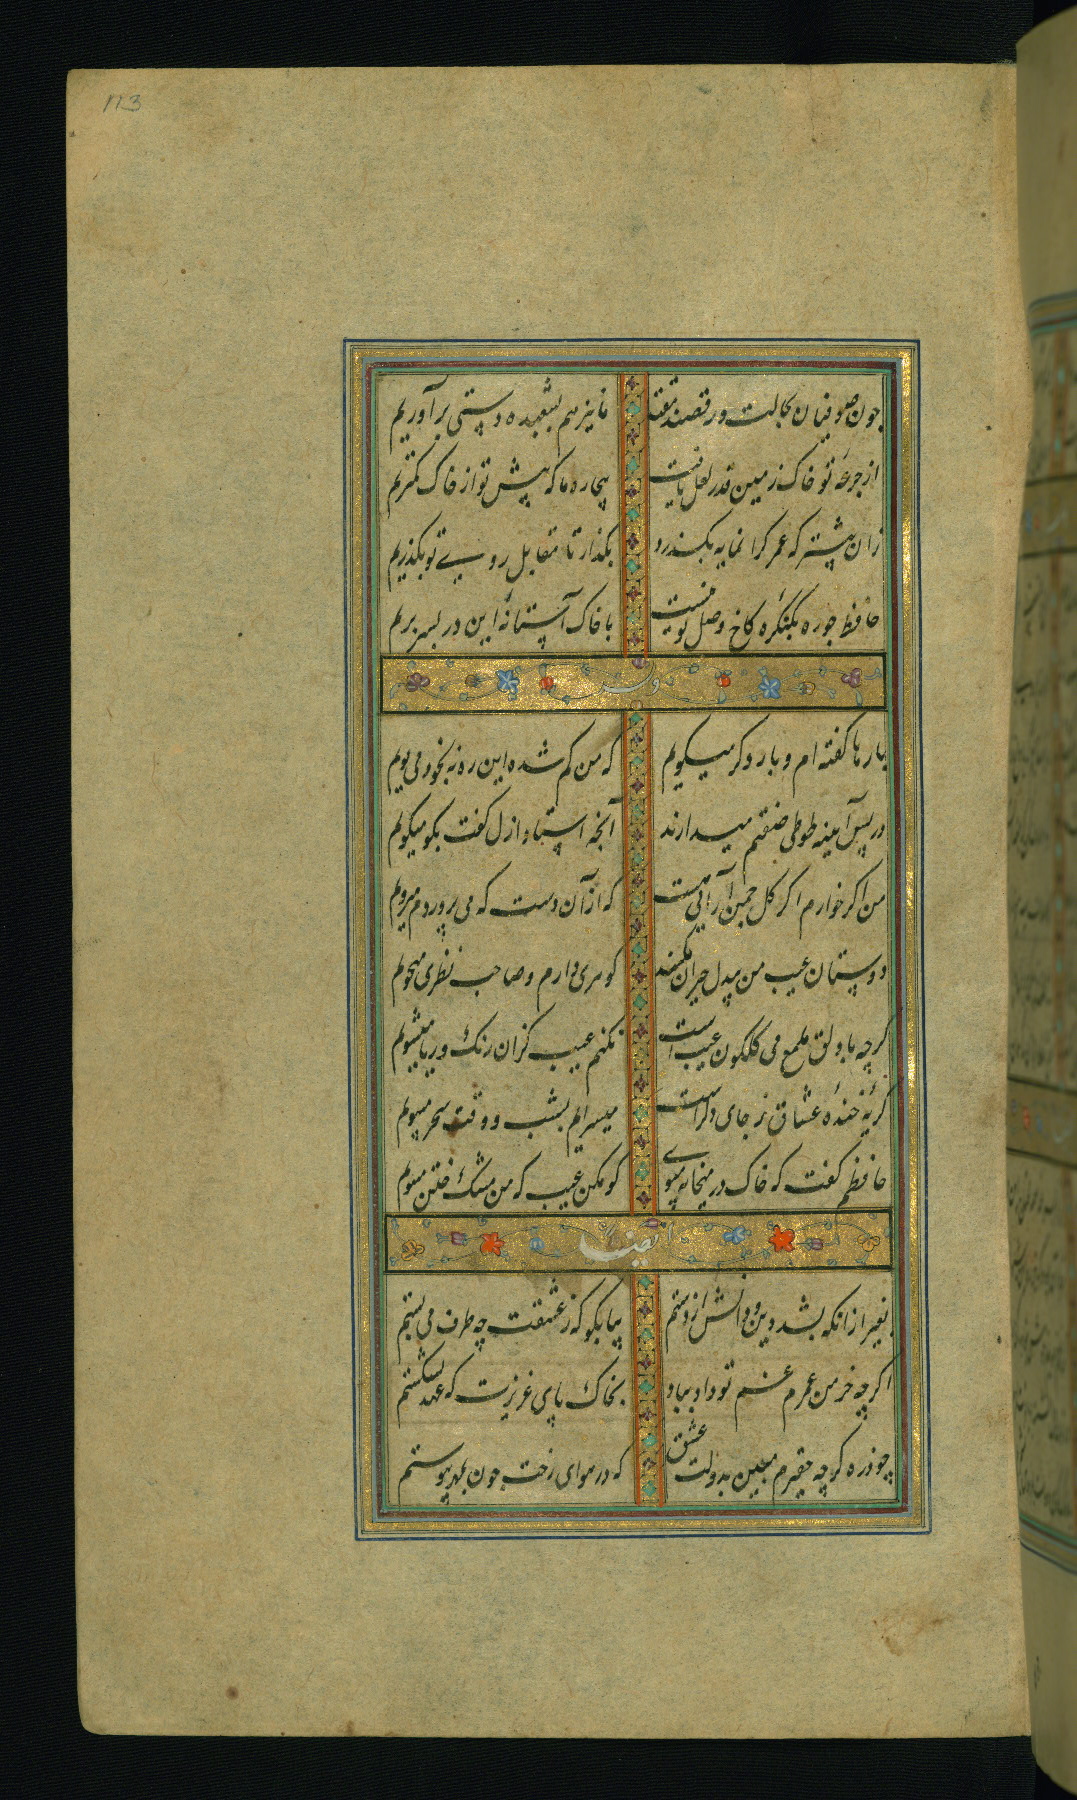 113
چون صوفیان بحالت و رقصند مقتدا
ما نیز هم بشعبده دستی برآوریم
از جرعهٔ تو خاک زمین قدر لعل یافت
بیچاره ما که پیش تو از خاک کمتریم
زان پیشتر که عمر گرانمایه بگذرد
بگذار تا مقابل روی تو بگذریم
حافظ چو ره بکنگرهٔ کاخ وصل تو نیست
با خاک آستانهٔ این در بسر بریم
وله
بارها گفته‌ام و بار دگر میگویم
که من گم شده این ره نه بخود می پویم
در پس آینه طوطی صفتم میدارند
آنچه استاد ازل گفت بگو میگویم
من اگر خوارم اگر گل چمن آرایی هست
که از آن دست که می پروردم میرویم
دوستان عیب من بیدل حیران مکنید
گوهری دارم و صاحب نظری میجویم
گرچه با دلق ملمع می گلگون عیب است
نکنم عیب کزان رنگ و ریا میشویم
گریهٔ خندهٔ عشاق ز جای دگر است
میسرایم بشب و وقت سحر میمویم
حافظم گفت که خاک در میخانه مبوی
گو مکن عیب که من مشک ختن میبویم
ایضا
بغیر از آنکه بشد دین و دانش از دستم
بیا بگو که ز عشقت چه طرف می بستم
اگرچه خرمن عمرم غم تو داد بباد
بخاک پای عزیزت که عهد نشکستم
چو ذره گرچه حقیرم ببین بدولت عشق
که در هوای رخت چون بمهر پیوستم